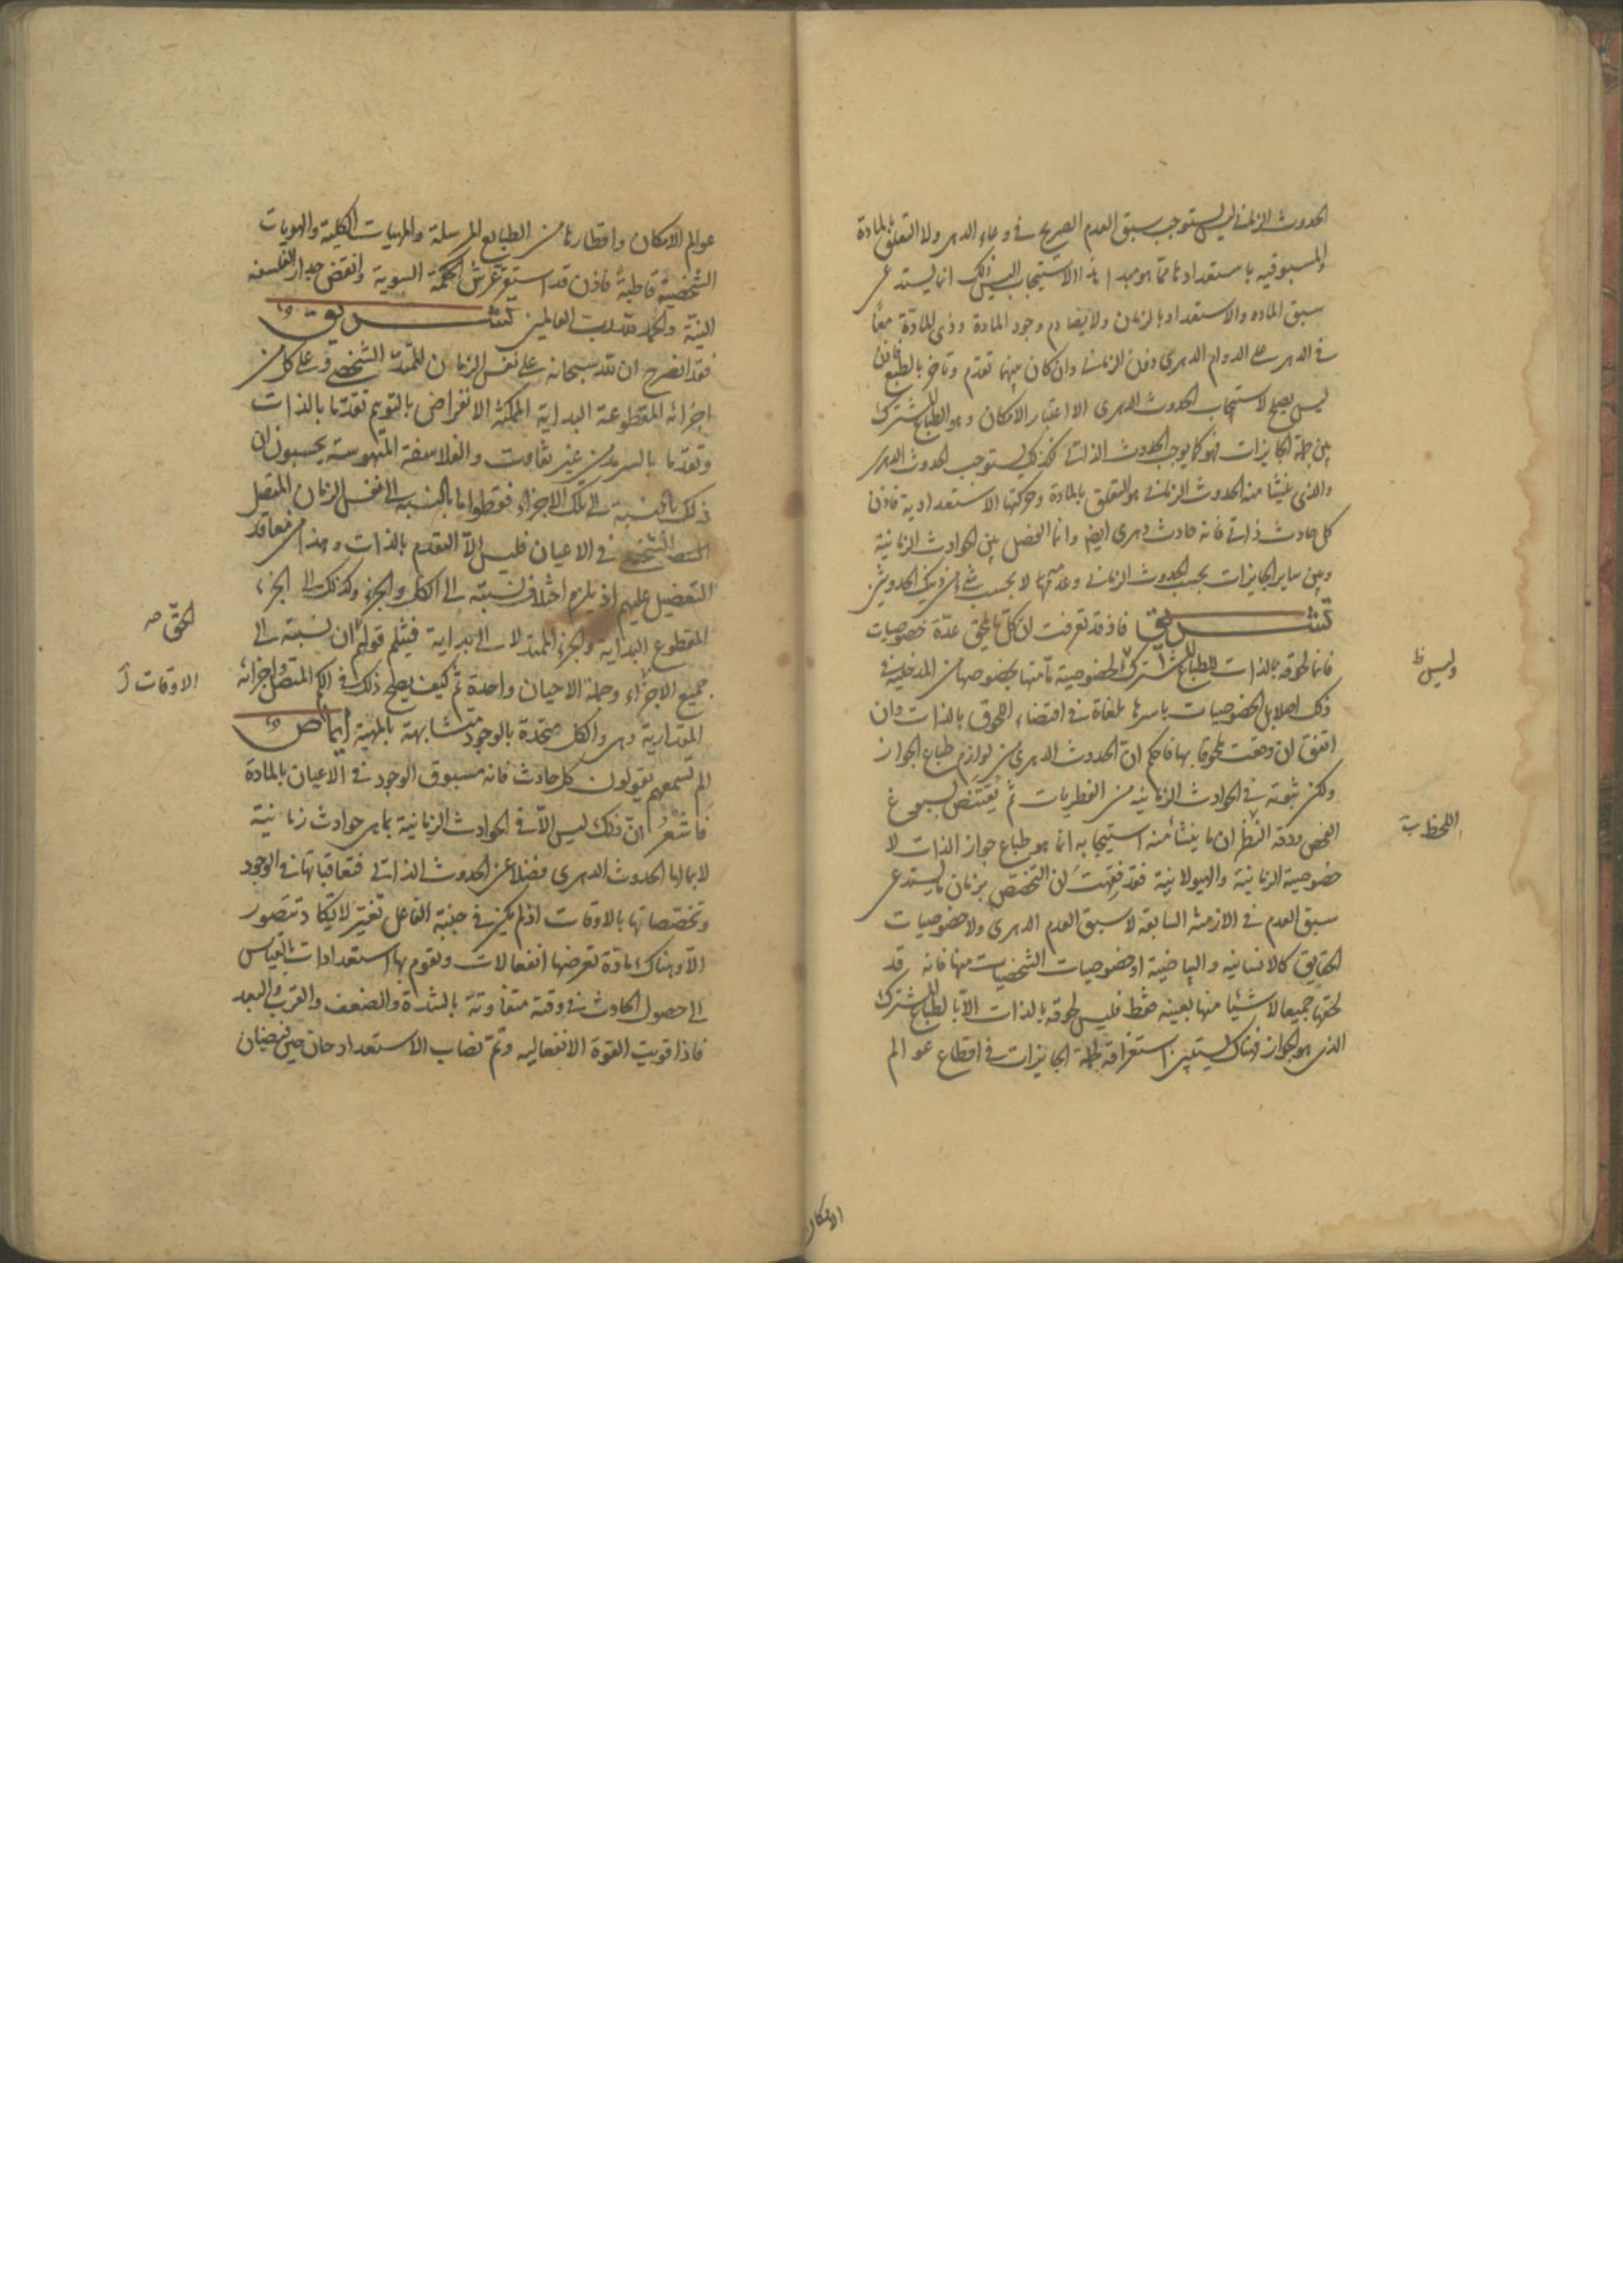 الحدوث الزماني ليس يستوجب سبق العدم الصريح في وعاء الدهر ولا التعلق بالمادة
والمسبوقية باستعداداتها مما هو مبدا هذا الاستيجاب اليس ذلك انما يستدعى
سبق المادة والاستعداد بالزمان ولا يصادم وجود المادة وذى المادة معا
في الدهر على الدوام الدهرى دون الزماني وان كان بينهما تقدم وتاخر بالطبع فاذن
ليس يصلح لاستيجاب الحدوث الدهرى الا اعتبار الامكان وهو الطباع المشترك
بين جملة الجايزات فهو كما يوجب الحدوث الذاتي كذلك يستوجب الحدوث الدهرى
والذى ينشا منه الحدوث الزماني هو التعلق بالمادة وحركتها الاستعدادية فاذن
كل حادث ذاتي فانه حادث دهرى ايضا وانما الفصل بين الحوادث الزمانية
وبين ساير الجايزات بحسب الحدوث الزماني وعدمه لا بحسب شئ من ذينك الحدوثين
تشريق فاذ قد تعرفت ان كل ما يلحق عدة خصوصيات
فانما لحوقه بالذات للطباع المشترك لا لخصوصية ما منها بخصوصها من المدخلية في
ذلك اصلا بل الخصوصيات باسرها ملغاة في اقتضاء اللحوق بالذات وان
اتفق ان وقعت ملحوقا بها فاحكم ان الحدوث الدهرى من لوازم طباع الجواز
ولكن ثبوته في الحوادث الزمانية من الفطريات ثم يقتنص بسبوغ
الفحص ودقة النظر ان ما ينشأ منه استيجابه انما هو طباع جواز الذات لا
خصوصية الزمانية والهيولانية فقد فقهت ان التخصص بزمان ما يستدعى
سبق العدم في الازمنة السابقة لا سبق العدم الدهرى ولا خصوصيات
الحقايق كالانسانية والبياضية او خصوصيات الشخصيات منها فانه قد
لحقها جميعا لا شيئا منها بعينه فقط فليس لحوقه بالذات الا بالطباع المشترك
الذى هو الجواز فهناك يستبين استغراقه لجملة الجايزات في اقطاع عوالم
وليس ظ
اللحظ
الامكان
عوالم الامكان واقطارها من الطبايع المرسلة والمهيات الكلية والهويات
الشخصية قاطبة فاذن قد استوى عرش الحكمة السوية وانقض جدار الفلسفة
النية والحمد لله رب العالمين تشريق
فقد انصرح ان لله سبحانه على نفس الزمان الممتد الشخصى وعلى كل من
اجزائه المقطوعة البداية الممكنة الانفراض بالتوهم تقدما بالذات
وتقدما بالسرمد من غير تفاوت والفلاسفة المتهوسة يحسبون ان
ذلك بالنسبة الى تلك الاجزاء فقط واما بالنسبة الى نفس الزمان المتصل
الشخصى في الاعيان فليس الا التقدم بالذات وهذا من معاقد
التفضيل عليهم اذ يلزم اختلاف نسبته الى الكل والجزء وكذلك الى الجزء
المقطوع البداية والجزء الممتد لا الى بداية فينثلم قولهم ان نسبته الى
جميع الاجزاء وجملة الاحيان واحدة ثم كيف يصلح ذلك في الكم المتصل واجزائه
المقدارية وهى والكل متحدة بالوجود متشابهة بالمهية ايماض
الم تسمعهم يقولون كل حادث فانه مسبوق الوجود في الاعيان بالمادة
فاشعر ان ذلك ليس الا في الحوادث الزمانية بما هى حوادث زمانية
لا بما لها الحدوث الدهرى فضلا عن الحدوث الذاتي فتعاقباتها في الوجود
وتخصصاتها بالاوقات اذ لم يكن في جنبة الفاعل تغير لا يكاد يتصور
الا وهناك مادة تعرضها انفعالات وتقوم بها استعدادات بالقياس
الى حصول الحادث في وقته متفاوتة بالشدة والضعف والقرب والبعد
فاذا قويت القوة الانفعالية وتم نصاب الاستعداد حان حين فيضان
الحق صه
الاوقات ل